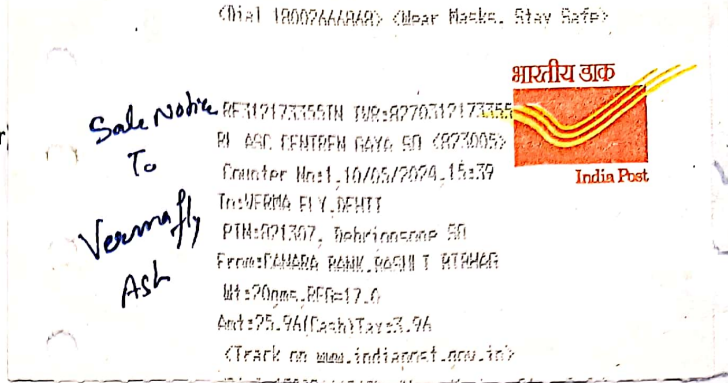 <Dial 18002666868> <Wear Masks, Stay Safe>
भारतीय डाक
India Post
Sale Notice
To
Verma fly
Ash
RF312173355IN IVR:8270312173355
RL ASC GAYA SO <823005>
Counter No:1,10/05/2024,15:39
To:VERMA FLY,DEHTI
PIN:821307, Dehrionsone SO
From:CANARA BANK,
Wt:20gms,REG=17.0
Amt:25.96(Cash)Tax:3.96
<Track on www.indiapost.gov.in>